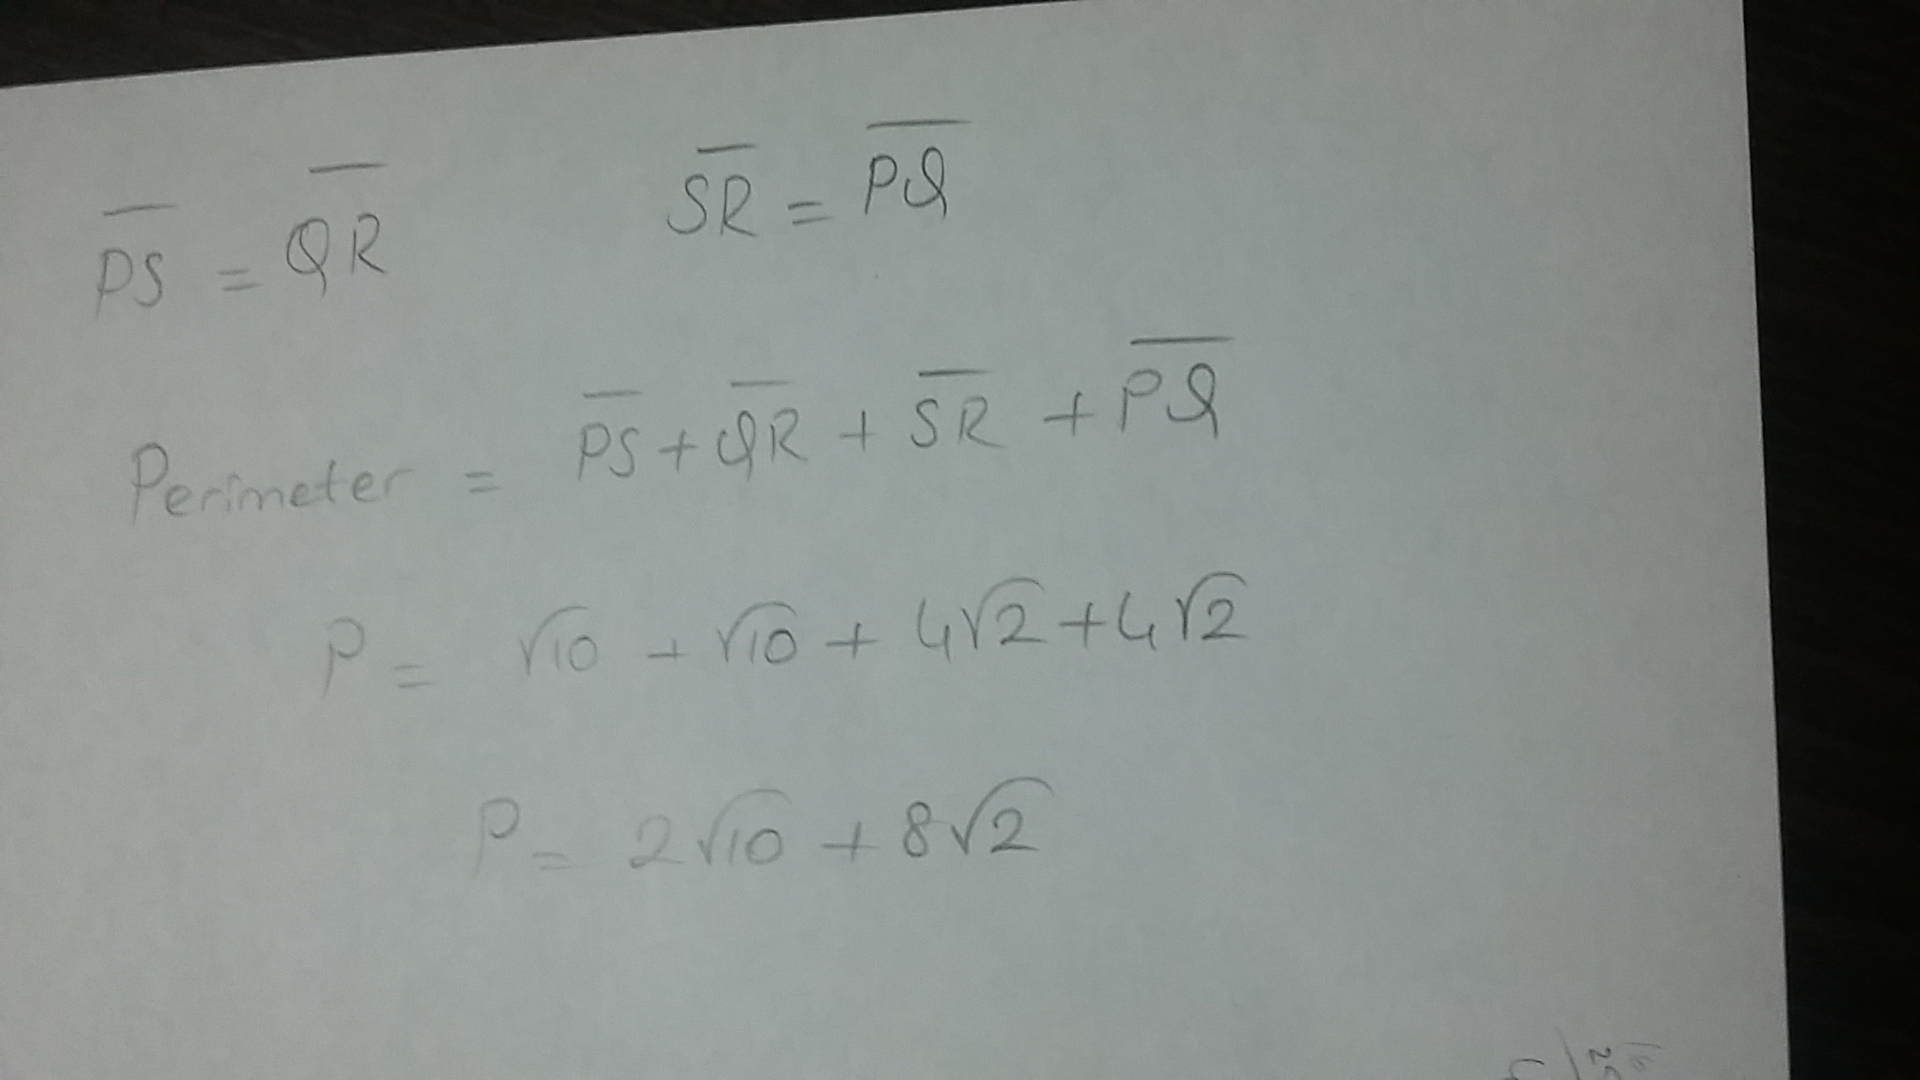 P̅S̅ = Q̅R̅ S̅R̅ = P̅Q̅
Perimeter = P̅S̅ + Q̅R̅ + S̅R̅ + P̅Q̅
P = √10 + √10 + 4√2 + 4√2
P = 2√10 + 8√2